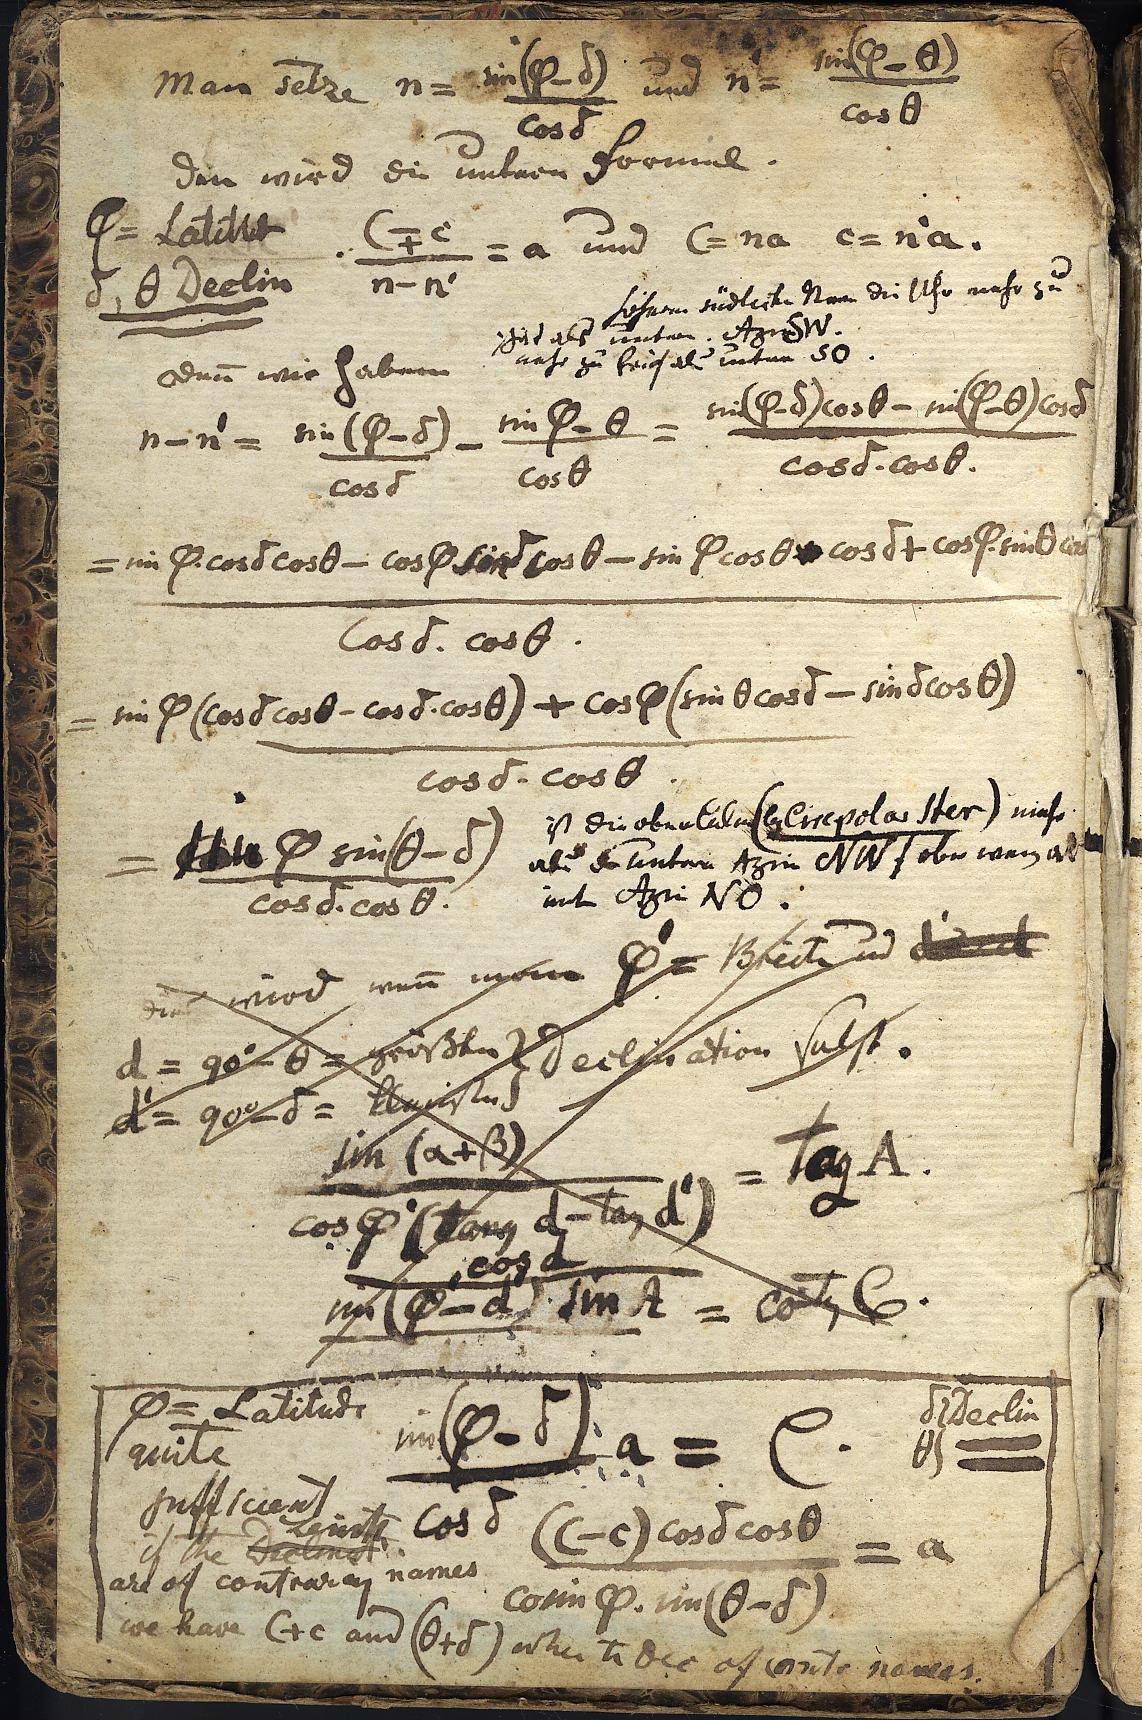 Man setze n = sin(φ-δ)/cosδ und n' = sin(φ-θ)/cosθ
dan wird die untere Formel.
φ = Latitud
δ, θ Declin
(C∓c)/(n-n') = a und C = na c = n'a.
südliche die Uhr mehr zu
als unten. Azm SW.
mehr zu als unten SO.
denn wir haben
n-n' = sin(φ-δ)/cosδ - sin φ-θ/cosθ = (sin(φ-δ)cosθ - sin(φ-θ)cosδ)/(cosδ.cosθ.)
= sin φ.cosδ cosθ - cosφ sinδ cosθ - sin φ cosθ cosδ + cosφ.sinθ cos
cosδ. cosθ.
= sin φ (cosδ cosθ - cosδ.cosθ) + cosφ (sinθ cosδ - sinδ cosθ)
cosδ. cosθ.
= φ sin(θ-δ)/(cosδ.cosθ.)
ist die obere (by Circpolar Ster) mehr
als untern Azm NW
mit Azm NO.
wird wenn man φ' = Breite und
d = 90°-θ = größten } Declination subst.
d' = 90°-δ = kleinsten }
sin (α+β)/(cosφ'(tang d - tag d')) = tag A.
cos d/(sin(φ'-d') sin A) = cotg C.
φ = Latitude
quite
sufficient
sin(φ-δ)/cosδ . a = C.
δ } Declin
θ }
if the
are of contraray names
(C-c) cosδ cosθ/(cosin φ. sin(θ-δ)) = a
we have C+c and (θ+δ) when te Dec of names.